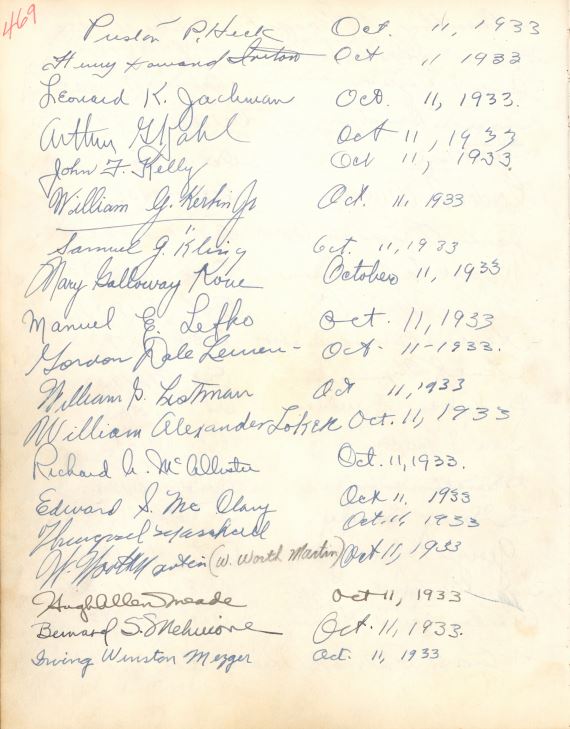 469
Preston P. Heck Oct. 11, 1933
Henry Howard Oct 11 1933
Leonard K. Jachman Oct. 11, 1933.
Arthur G Kahl Oct 11, 1933
John F. Kelly Oct 11, 1933.
William G. Kerbin Jr Oct. 11. 1933
Samuel G. Kling Oct. 11, 1933
Mary Galloway October 11, 1933
Manuel E. Lefko Oct. 11, 1933
Gordon Dale Oct. 11-1933.
William G. Listman Oct 11, 1933
William Alexander Loker Oct. 11, 1933
Richard A. McAllister Oct. 11, 1933.
Edward S. Mc Clary Oct 11. 1933
Oct. 11, 1933
W. Worth Martin (W. Worth Martin) Oct 11, 1933
Hugh Allen Meade Oct 11, 1933
Bernard S. Melnicove Oct. 11, 1933.
Irving Winston Mezger Oct. 11, 1933